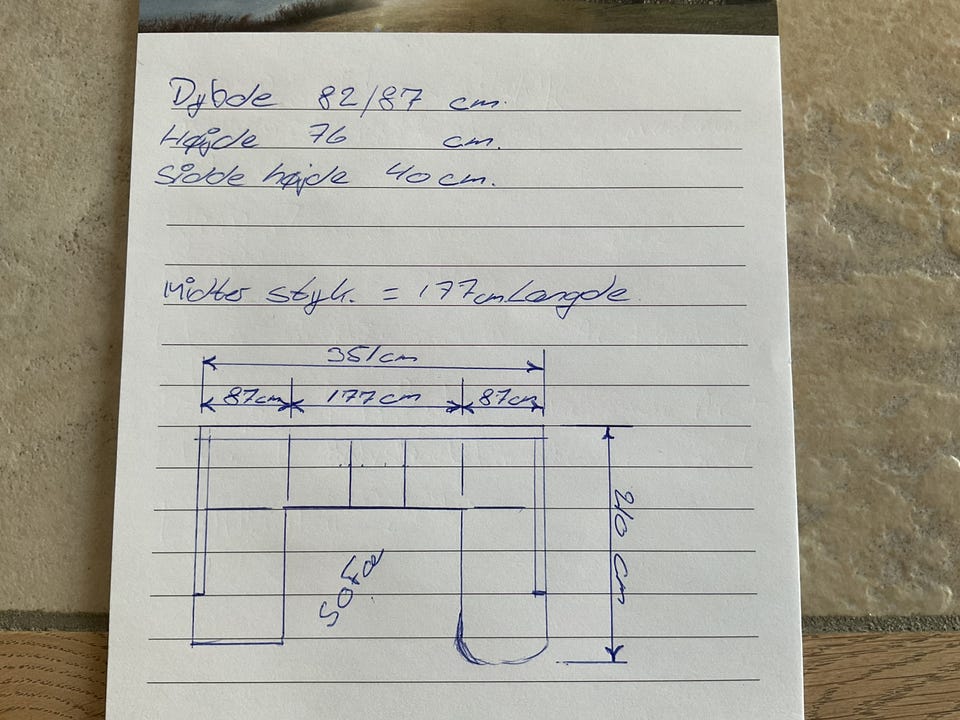 Dybde 82/87 cm.
Højde 76 cm.
Sidde højde 40 cm.
Midter styk. = 177cm Længde
351cm
87cm 177cm 87cm
210 cm
Sofa